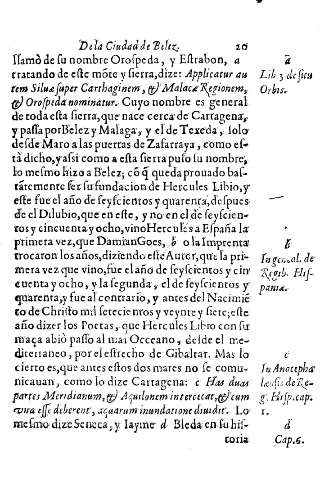 De la Ciudad de Belez. 20
ssamò de su nombre Orospeda, y Estrabon, a
tratando de este mõte y sierra, dize: Applicatur au
tem Siluæ super Carthaginem, & Malacæ Regionem,
& Orospeda nominatur. Cuyo nombre es general
de toda esta sierra, que nace cerca de Cartagena,
y passa por Belez y Malaga, y el de Texeda, solo
desde Maro a las puertas de Zafarraya, como es-
tà dicho, y assi como a esta sierra puso su nombre,
lo mesmo hizo a Belez; cõ q̃ queda prouado bas-
tãtemente ser su fundacion de Hercules Libio, y
este fue el año de seyscientos y quarenta, despues
de el Dilubio, que en este, y no en el de seyscien-
tos y cincuenta y ocho, vino Hercules a España la
primera vez, que Damian Goes, b o la Imprenta
trocaron los años, diziendo este Autor, que la pri-
mera vez que vino, fue el año de seyscientos y cin
cuenta y ocho, y la segunda, el de seyscientos y
quarenta, y fue al contrario, y antes del Nacimiẽ
to de Christo mil setecientos y veynte y siete; este
año dizen los Poetas, que Hercules Libio con su
maça abiò passo al mar Occeano, desde el me-
diterraneo, por el estrecho de Gibaltar. Mas lo
cierto es, que antes estos dos mares no se comu-
nicauan, como lo dize Cartagena: c Has duas
partes Meridianum, & Aquilonem intersecat, & cum
una esse deberent, aquarum inundatione diuidit. Lo
mesmo dize Seneca, y Iayme d Bleda en su his-
toria
a
Lib. 3. de situ
Orbis.
b
In general. de
Regib. His-
paniæ.
c
In Anocephæ
læosis de Re-
g. Hisp. cap.
1.
d
Cap. 6.